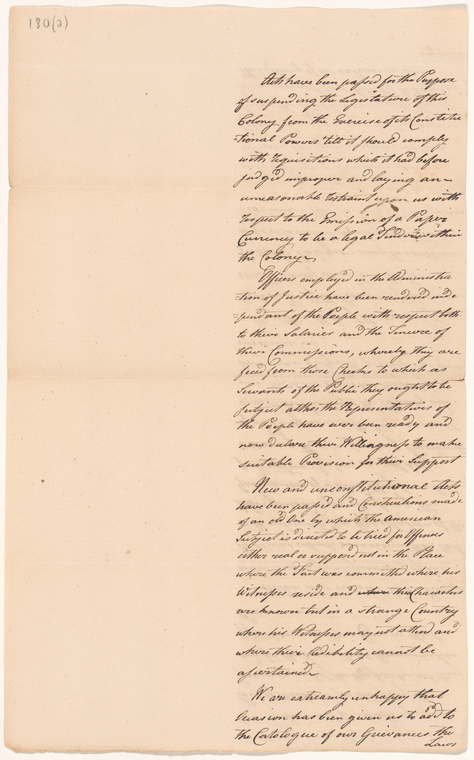 180(2)
Acts have been passed for the Purpose
of suspending the Legislature of this
Colony from the Exercise of its Constitu
-tional Powers till it should comply
with requisitions which it had before
judg'd improper and laying an
unreasonable restraint upon us with
respect to the Emission of a Paper
Currency to be a legal Tender within
the Colony.
Officers employ'd in the Administra
-tion of Justice have been rendred inde
-pendant of the People with respect both
to their Salaries and the Tenure of
their Commissions, whereby they are
freed from those Checks to which as
Servants of the Public they ought to be
subject altho the Representatives of
the People have ever been ready and
now declare their Willingness to make
suitable Provision for their Support
New and unconstitutional Acts
have been passed and Constructions made
of an old One by which the American
Subject is directed to be tried for Offenses
either real or supposed not in the Place
where the Fact was committed where his
Witnesses reside and where their Characters
are known but in a strange Country
where his Witnesses may not attend and
where their Credibility cannot be
ascertained.
We are extreamly unhappy that
Occasion has been given us to add to
the Catalogue of our Grievances the
Laws